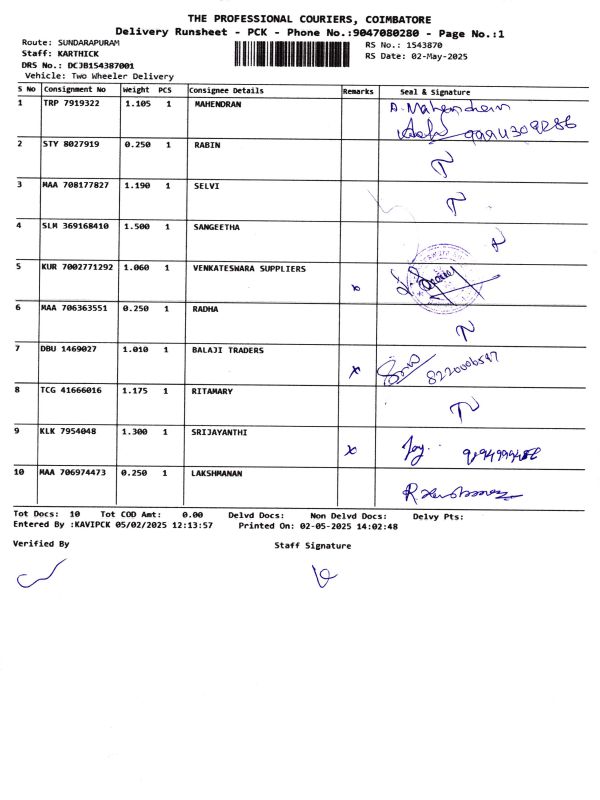 THE PROFESSIONAL COURIERS, COIMBATORE
Delivery Runsheet - PCK - Phone No.:9047080280 - Page No.:1
Route: SUNDARAPURAM RS No.: 1543870
Staff: KARTHICK RS Date: 02-May-2025
DRS No.: DCJB154387001
Vehicle: Two Wheeler Delivery
S No Consignment No Weight PCS Consignee Details Remarks Seal & Signature
1 TRP 7919322 1.105 1 MAHENDRAN A. Mahendran
9994309286
2 STY 8027919 0.250 1 RABIN
3 MAA 708177827 1.190 1 SELVI
4 SLM 369168410 1.500 1 SANGEETHA
5 KUR 7002771292 1.060 1 VENKATESWARA SUPPLIERS
6 MAA 706363551 0.250 1 RADHA
7 DBU 1469027 1.010 1 BALAJI TRADERS x 8220006597
8 TCG 41666016 1.175 1 RITAMARY
9 KLK 7954048 1.300 1 SRIJAYANTHI x Joy.
10 MAA 706974473 0.250 1 LAKSHMANAN
Tot Docs: 10 Tot COD Amt: 0.00 Delvd Docs: Non Delvd Docs: Delvy Pts:
Entered By :KAVIPCK 05/02/2025 12:13:57 Printed On: 02-05-2025 14:02:48
Verified By Staff Signature